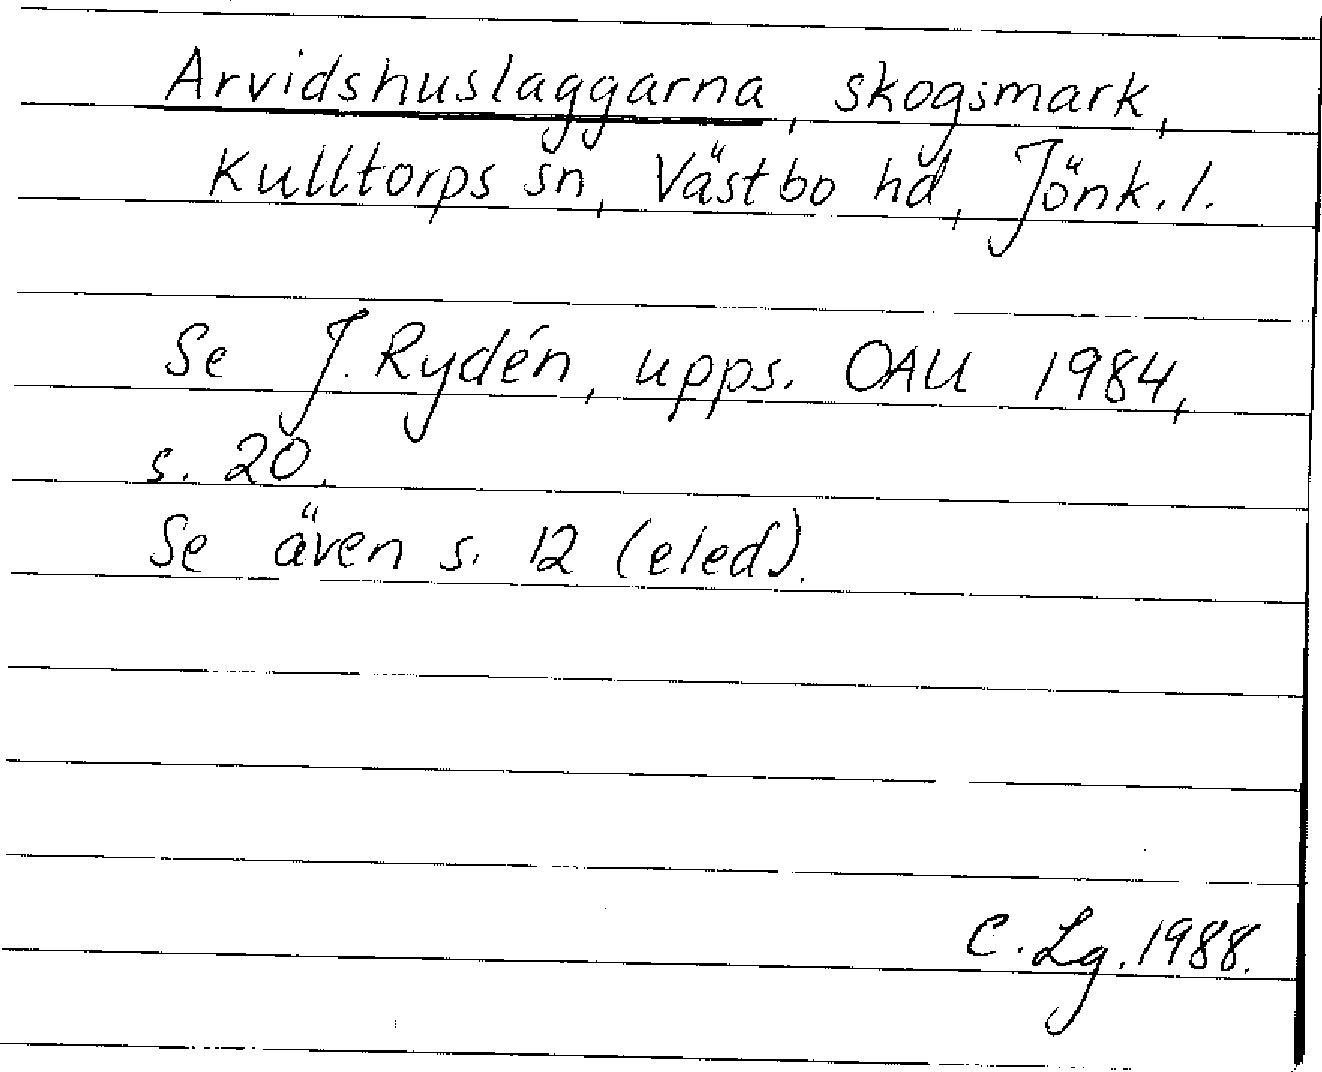 Arvidshuslaggarna, skogsmark,
Kulltorps sn, Västbo hd, Jönk. l.
Se J. Rydén, upps. OAU 1984,
s. 20.
Se även s. 12 (eled).
C. Lg. 1988.